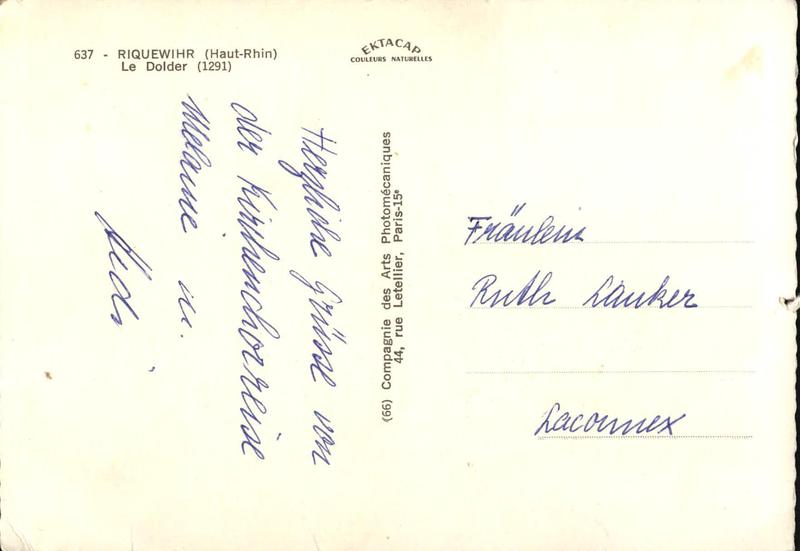 637 - RIQUEWIHR (Haut-Rhin)
Le Dolder (1291)
EKTACAP
COULEURS NATURELLES
Herzliche Grüsse von
der Kirchenchorreise
Melanie u.
Heidi
(66) Compagnie des Arts Photomécaniques
44, rue Letellier, Paris-15e
Fräulein
Ruth Lauker
Laconnex